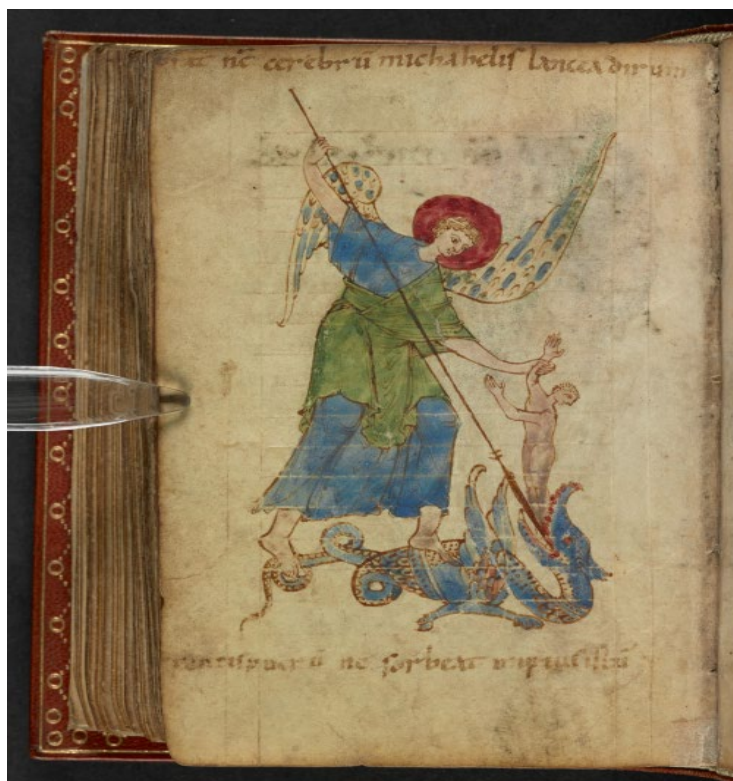 nc̄ cerebrū michahelis lancea dirum
puerū ne sorbeat impius istū